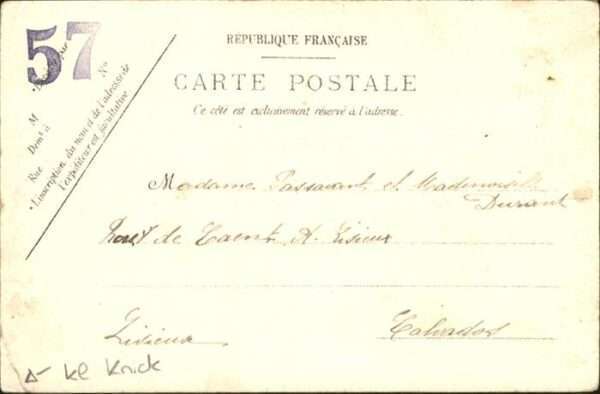 57
RÉPUBLIQUE FRANÇAISE
CARTE POSTALE
Ce côté est exclusivement réservé à l'adresse.
No
M
Demt à
Rue
• L'inscription du nom et de l'adresse de
l'expéditeur est facultative.
Madame Passavant et Mademoiselle
Durant
de A. Lisieux
Lisieux
Calvados